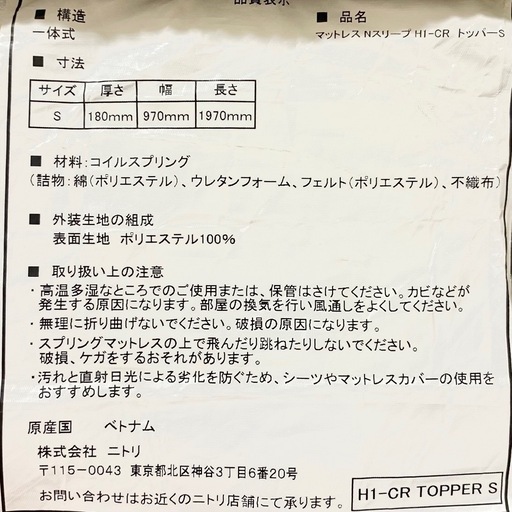 品質表示
■ 構造
一体式
■ 品名
マットレス Nスリープ H1-CR トッパーS
■ 寸法
サイズ 厚さ 幅 長さ
S 180mm 970mm 1970mm
■ 材料:コイルスプリング
(詰物:綿(ポリエステル)、ウレタンフォーム、フェルト(ポリエステル)、不織布)
■ 外装生地の組成
表面生地 ポリエステル100%
■ 取り扱い上の注意
・高温多湿なところでのご使用または、保管はさけてください。カビなどが
発生する原因になります。部屋の換気を行い風通しをよくしてください。
・無理に折り曲げないでください。破損の原因になります。
・スプリングマットレスの上で飛んだり跳ねたりしないでください。
破損、ケガをするおそれがあります。
・汚れと直射日光による劣化を防ぐため、シーツやマットレスカバーの使用を
おすすめします。
原産国 ベトナム
株式会社 ニトリ
〒115-0043 東京都北区神谷3丁目6番20号
お問い合わせはお近くのニトリ店舗にて承ります。
H1-CR TOPPER S